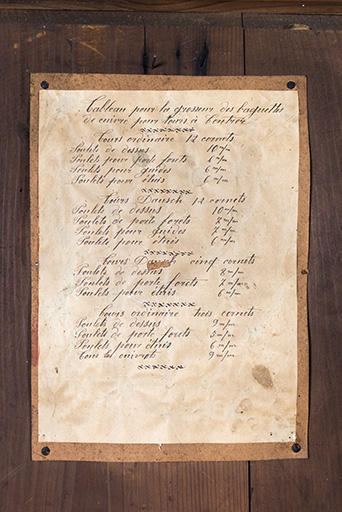 Tableau pour la grosseur des baguettes
de cuivre pour tours à
Tours ordinaire 12 cornets
Poulets de dessus 10 m/m
Poulets pour porte forets 6 m/m
Poulets pour guides 6 m/m
Poulets pour étuis 6 m/m
Tours Dausch 12 cornets
Poulets de dessus 10 m/m
Poulets de porte forets 8 m/m
Poulets pour guides 7 m/m
Poulets pour étuis 6 m/m
Tours Dausch cinq cornets
Poulets de dessus 8 m/m
Poulets de porte forets 7 m/m
Poulets pour étuis 6 m/m
Tours ordinaire trois cornets
Poulets de dessus 9 m/m
Poulets de porte forets m/m
Poulets pour étuis 6 m/m
Tous les cuivrots 9 m/m